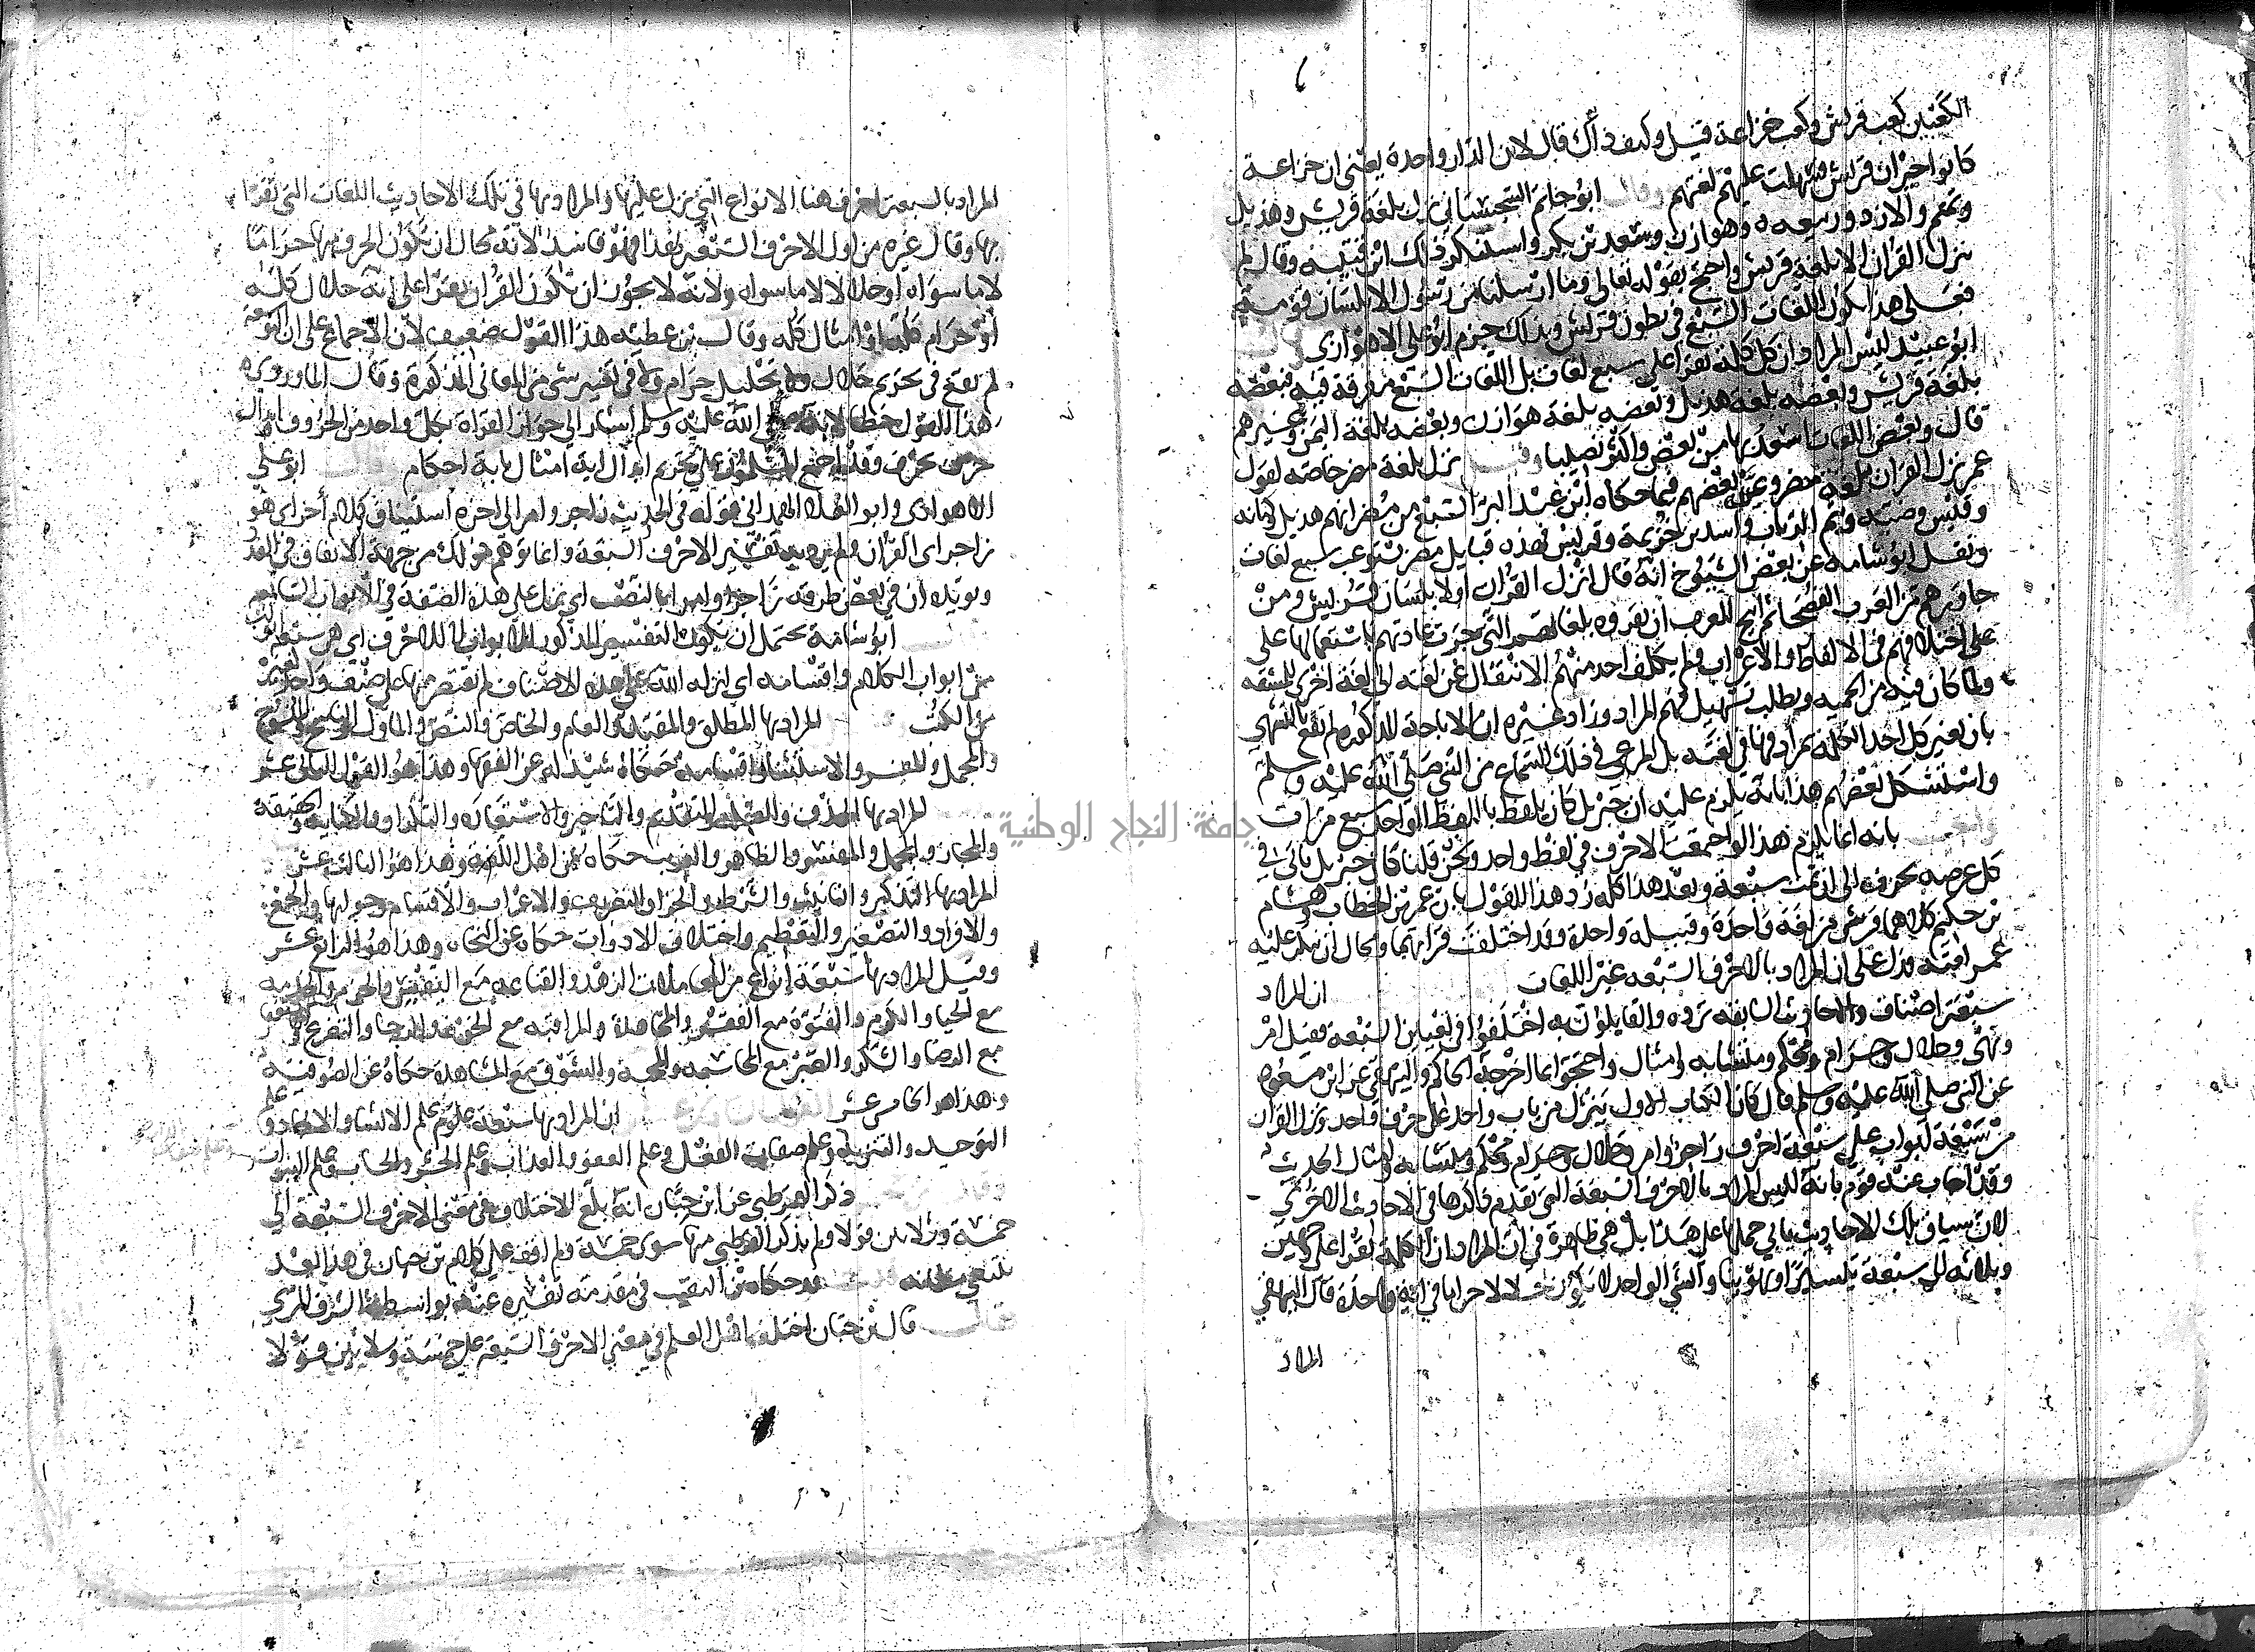 الكعبين كعب قريش وكعب خزاعة قيل وكيف ذاك قال لان الدار واحدة يعنى ان خزاعة
كانوا جيران قريش فسهلت عليهم لغتهم وقال ابو حاتم السجستانى نزل بلغة قريش وهذيل
وتميم والازد وربيعه وهوازن وسعد بن بكر واستنكر ذلك ابن قتيبه وقال لم
ينزل القران الا بلغة قريش واحتج بقوله تعالى وما ارسلنا من رسول الا بلسان قومه
فعلى هذا يكون اللغات السبع فى بطون قريش وبذلك جزم ابو على الاهوازى
ابو عبيد ليس المراد ان كل كلمة تقرا على سبع لغات بل اللغات السبع مفرقة فيه فبعضه
بلغة قريش وبعضه بلغة هذيل وبعضه بلغة هوازن وبعضه بلغة اليمن وغيرهم
قال وبعض اللغات اسعد بها من بعض واكثر نصيبا وقيل نزل بلغة مضر خاصة لقول
عمر نزل القران بلغة مضر وعين بعضهم فيما حكاه ابن عبد البر السبع من مضر انهم هذيل وكنانه
وقيس وضبه وتيم الرباب واسد بن خزيمة وقريش فهذه قبايل مضر تستوعب سبع لغات
ونقل ابو شامه عن بعض الشيوخ انه قال انزل القران اولا بلسان قريش ومن
جاورهم من العرب الفصحا ثم ابيح للعرب ان يقروه بلغاتهم التى جرت عادتهم باستعمالها على
على اختلافهم فى الالفاظ والاعراب ولم يكلف احد منهم الانتقال عن لغته الى لغة اخرى للمشقه
ولما كان فيه من الحميه ويطلب تسهيل فهم المراد وزاد غيره ان الاباحة المذكوره لم تقع بالتشهى
بان يغير كل احد الكلمة بمرادفها فى لغته بل المرعى فى ذلك السماع من النبى صلى الله عليه وسلم
واستشكل بعضهم هذا بانه يلزم عليه ان جبريل كان يلفظ باللفظ الواحد سبع مرات
واجيب بانه انما يلزم هذا لو اجتمعت الاحرف فى لفظ واحد ونحن قلنا كان جبريل ياتى فى
كل عرضه بحرف الى ان تمت سبعة وبعد هذا كله رد هذا القول بان عمر بن الخطاب وهشام
بن حكيم كلاهما قرشى من لغة واحدة وقبيلة واحدة وقد اختلفت قراتهما ومحال ان ينكر عليه
عمر لغته فدل على ان المراد بالاحرف السبعه غير اللغات ان المراد
سبعة اصناف والاحاديث السابقه ترده والقايلون به اختلفوا فى تعيين السبعة فقيل امر
ونهى وحلال وحرام ومحكم ومتشابه وامثال واحتجوا بما اخرجه الحاكم والبيهقى عن ابن مسعود
عن النبى صلى الله عليه وسلم قال كان الكتاب الاول ينزل من باب واحد على حرف واحد ونزل القران
من سبعة ابواب على سبعة احرف زاجر وامر وحلال وحرام ومحكم ومتشابه وامثال الحديث
وقد اجاب عنه قوم بانه ليس المراد بالاحرف السبعة التى تقدم ذكرها فى الاحاديث الاخرى
لان سياق تلك الاحاديث يابى حملها على هذا بل هى ظاهرة فى ان المراد ان الكلمة تقرا على وجهين
وثلاثه الى سبعة تيسيرا وتهوينا والشى الواحد لا يكون حلالا حراما فى اية واحدة قال البيهقى
المراد
المراد بالسبعة احرف هنا الانواع التى نزل عليها والمراد بها فى تلك الاحاديث اللغات التى تقرا
بها وقال غيره من اول الاحرف السبعة بهذا فهو فاسد لانه محال ان يكون الحرف منها حراما
لا ما سواه او حلالا لا ما سواه ولانه لا يجوز ان يكون القران يقرا على انه حلال كله
او حرام كله او امثال كله وقال بن عطيه هذا القول ضعيف لان الاجماع على ان التوسعة
لم تقع فى تحريم حلال ولا تحليل حرام ولا فى تغيير شى من المعانى المذكورة وقال الماوردى
هذا القول خطا لانه صلى الله عليه وسلم اشار الى جواز القراة بكل واحد من الحروف وابدال
حرف بحرف وقد اجمع المسلمون على تحريم ابدال اية امثال باية احكام قال ابو على
الاهوازى وابو العلاء الهمدانى قوله فى الحديث زاجر وامر الى اخره استيناف كلام اخر اى هو
زاجر اى القران ولم يرد به تفسير الاحرف السبعة وانما توهم ذلك من جهة الاتفاق فى العدد
ويويده ان فى بعض طرقه زاجرا وامرا بالنصب اى نزل على هذه الصفة فى الابواب السبعة
ابو شامة يحتمل ان يكون التفسير المذكور للابواب لا للاحرف اى هى سبعة ابواب
من ابواب الكلام واقسامه اى انزله الله على هذه الاصناف لم يقتصر منها على صنف واحد كغيره
من الكتب المراد بها المطلق والمقيد والعام والخاص والنص والماول والناسخ والمنسوخ
والمجمل والمفسر والاستثنا واقسامه حكاه شيدله عن الفقها وهذا هو القول الثانى عشر
المراد بها الحذف والصلة والتقديم والتاخير والاستعاره والتكرار والكناية والحقيقة
والمجاز والمجمل والمفسر والظاهر والغريب حكاه عن اهل اللغة وهذا هو الثالث عشر
المراد بها التذكير والتانيث والشرط والجزا والتصريف والاعراب والاقسام وجوابها والجمع
والافراد والتصغير والتعظيم واختلاف الادوات حكاه عن النحاه وهذا هو الرابع عشر
وقيل المراد بها سبعة انواع من المعاملات الزهد والقناعه مع اليقين والحزم والخدمه
مع الحيا والكرم والفتوة مع الفقر والمجاهدة والمراقبه مع الخوف والرجا والتضرع والاستغفار
مع الرضا والشكر والصبر مع المحاسبه والمحبة والشوق مع المشاهدة حكاه عن الصوفية
وهذا هو الخامس عشر ان المراد بها سبعة علوم علم الانشا والايجاد وعلم
التوحيد والتنزيه وعلم صفات الفعل وعلم العفو والعذاب وعلم الحشر والحساب وعلم النبوات
ذكر القرطبى عن ابن حبان انه بلغ الاختلاف فى معنى الاحرف السبعة الى
خمسة وثلاثين قولا ولم يذكر القرطبى منها سوى خمسة ولم اقف على كلام بن حبان فى هذا بعد
تتبعى مظانه قلت قد حكاه بن النقيب فى مقدمة تفسيره عنه بواسطة الشرف المزنى
فقال قال بن حبان اختلف اهل العلم فى معنى الاحرف السبعة على خمسة وثلاثين قولا
جامعة النجاح الوطنية